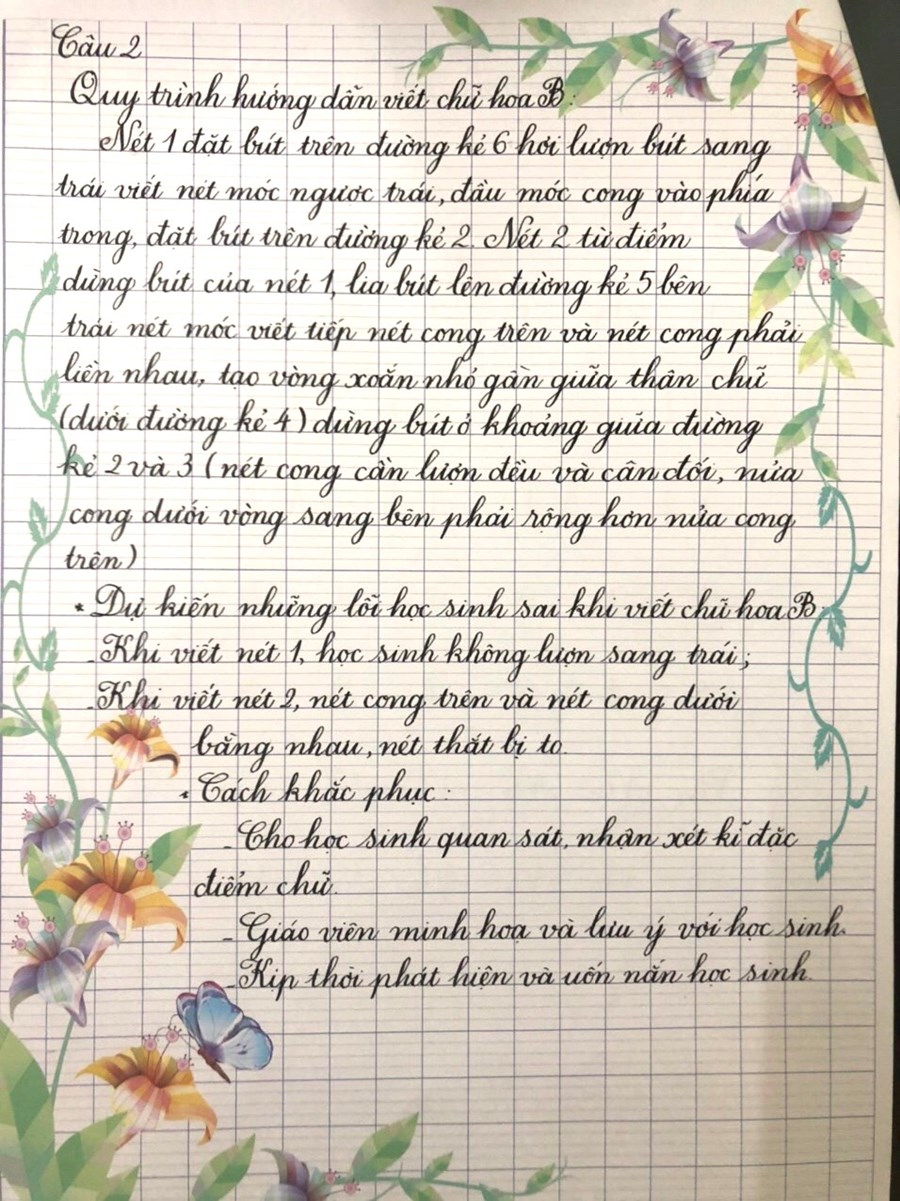 Câu 2
Quy trình hướng dẫn viết chữ hoa B:
Nét 1 đặt bút trên đường kẻ 6 hơi lượn bút sang
trái viết nét móc ngược trái, đầu móc cong vào phía
trong, đặt bút trên đường kẻ 2. Nét 2 từ điểm
dừng bút của nét 1, lia bút lên đường kẻ 5 bên
trái nét móc viết tiếp nét cong trên và nét cong phải
liền nhau, tạo vòng xoắn nhỏ gần giữa thân chữ
(dưới đường kẻ 4) dừng bút ở khoảng giữa đường
kẻ 2 và 3 (nét cong cần lượn đều và cân đối, nửa
cong dưới vòng sang bên phải rộng hơn nửa cong
trên)
* Dự kiến những lỗi học sinh sai khi viết chữ hoa B:
- Khi viết nét 1, học sinh không lượn sang trái;
- Khi viết nét 2, nét cong trên và nét cong dưới
bằng nhau, nét thắt bị to.
* Cách khắc phục:
- Cho học sinh quan sát, nhận xét kĩ đặc
điểm chữ.
- Giáo viên minh họa và lưu ý với học sinh.
- Kịp thời phát hiện và uốn nắn học sinh.